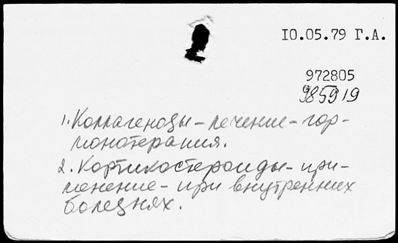 10.05.79 Г.А.
972805
985919
1. Коллагенозы – лечение – гор-
монотерапия.
2. Кортикостероиды – при-
менение – при внутренних
болезнях.